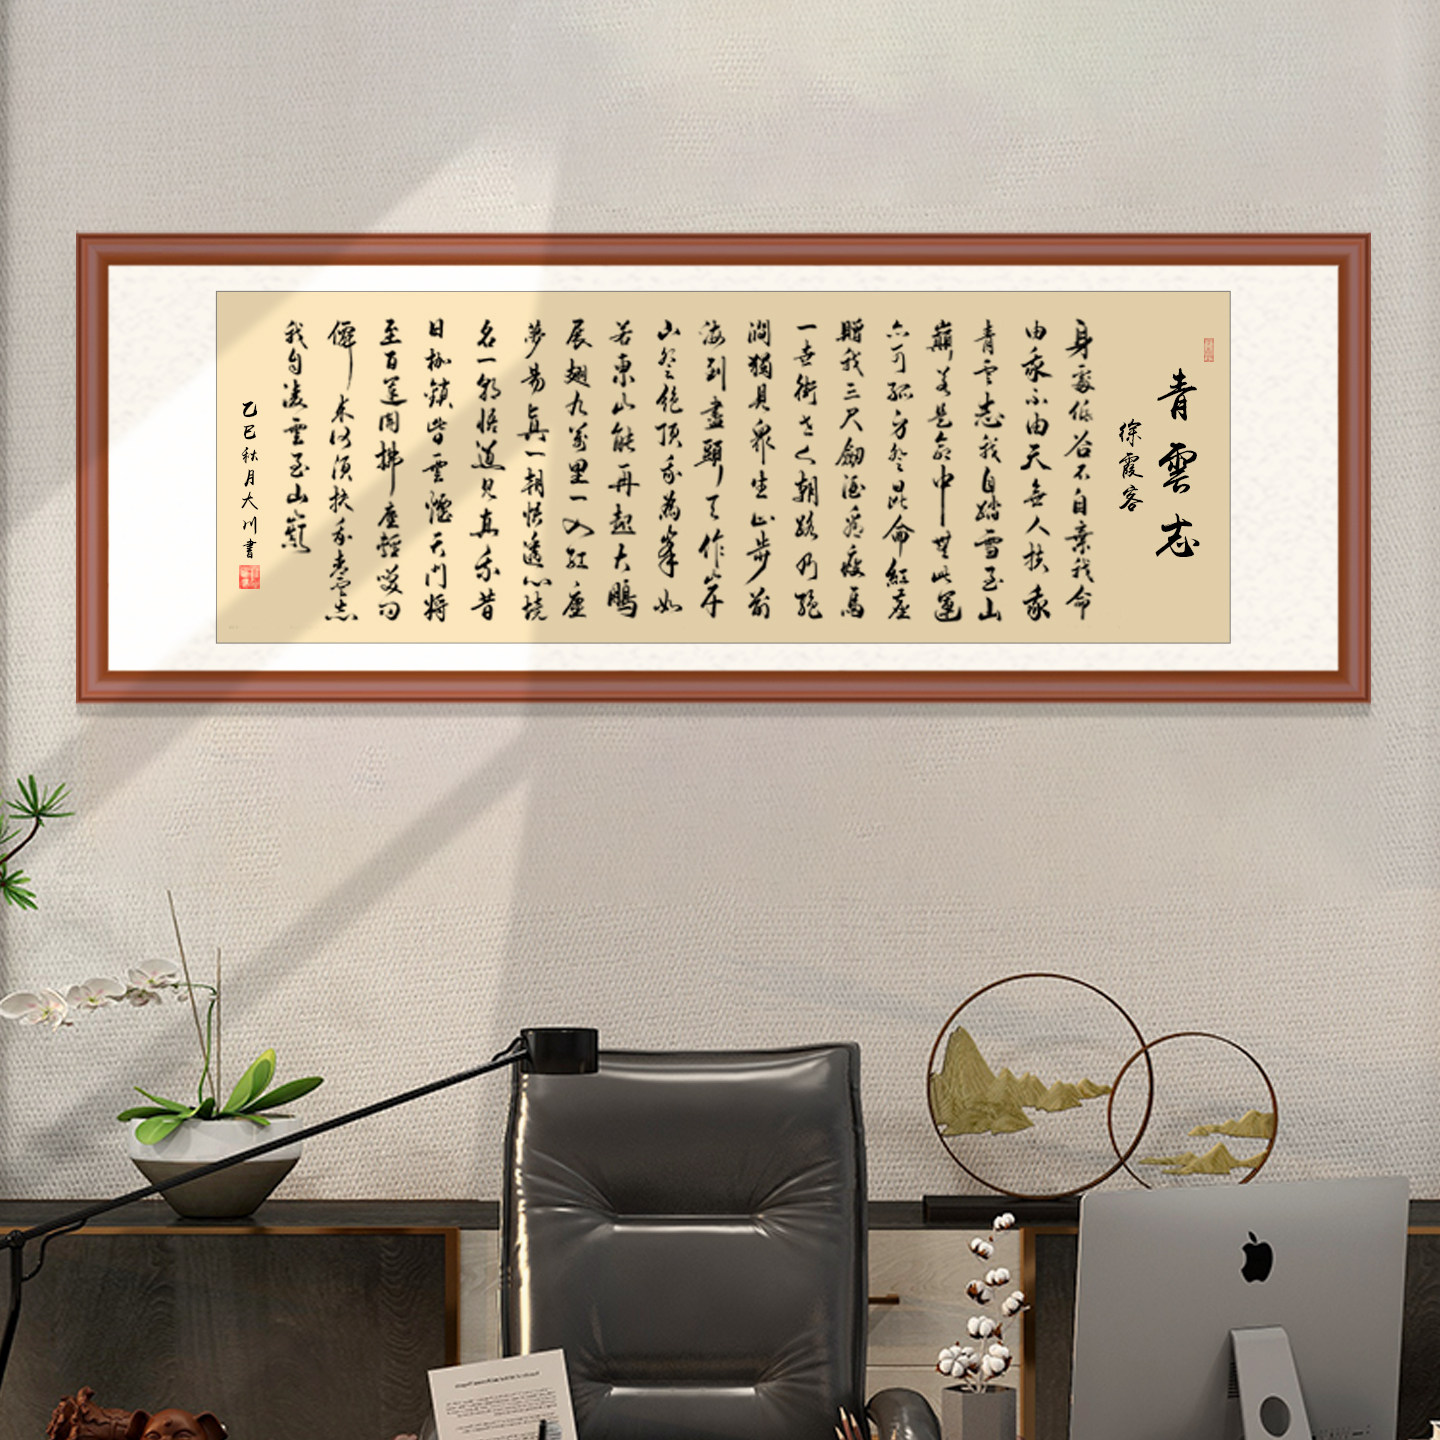 青雲志
徐霞客
身處低谷不自棄我命
由我不由天無人扶我
青雲志我自踏雪至山
巔若是命中無此運
亦可孤身登昆侖紅塵
贈我三尺劍酒瘦馬
一世街人朝路乃絕
澗獨見眾生止步前
海到盡頭天作岸
山登絕頂我為峯如
若東山能再起大鵬
展翅九萬里一入紅塵
夢易真一朝悟透心境
名一朝悟道見真我昔
日枷鎖皆雲煙天門將
至百運開拂塵輕笑問
僊本何須扶我青雲志
我自淩雲至山巔
乙巳秋月大川書